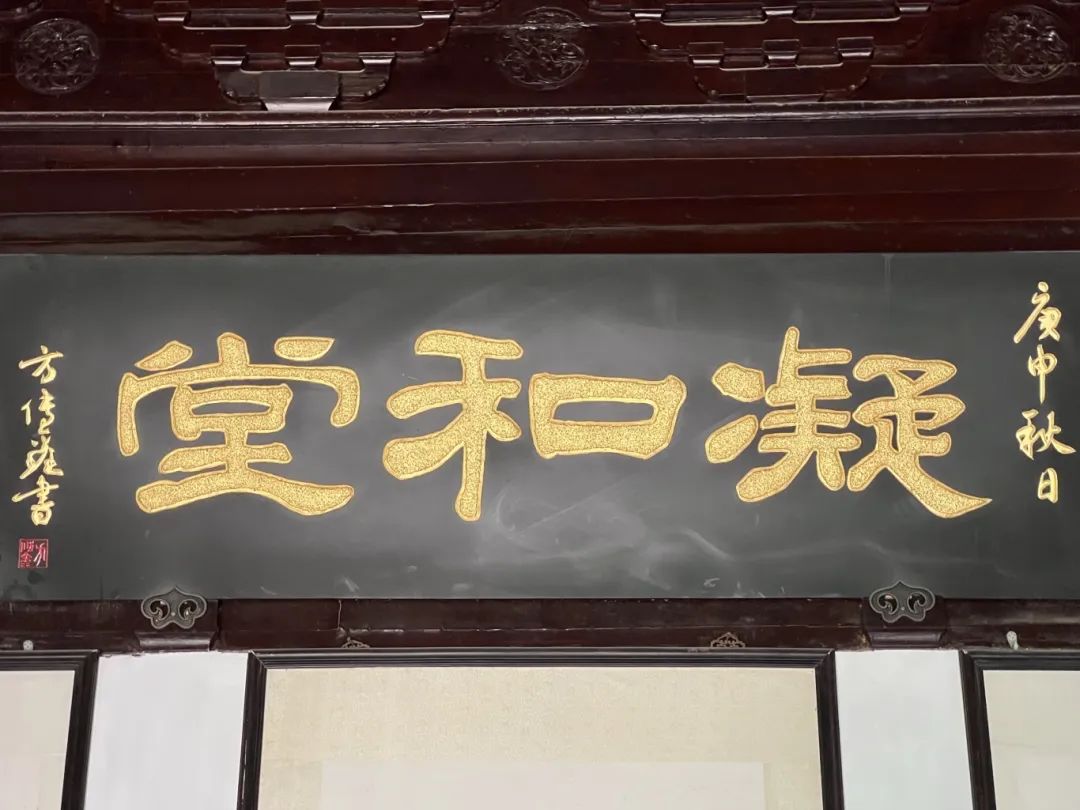 庚申秋日
凝和堂
方传鑫書